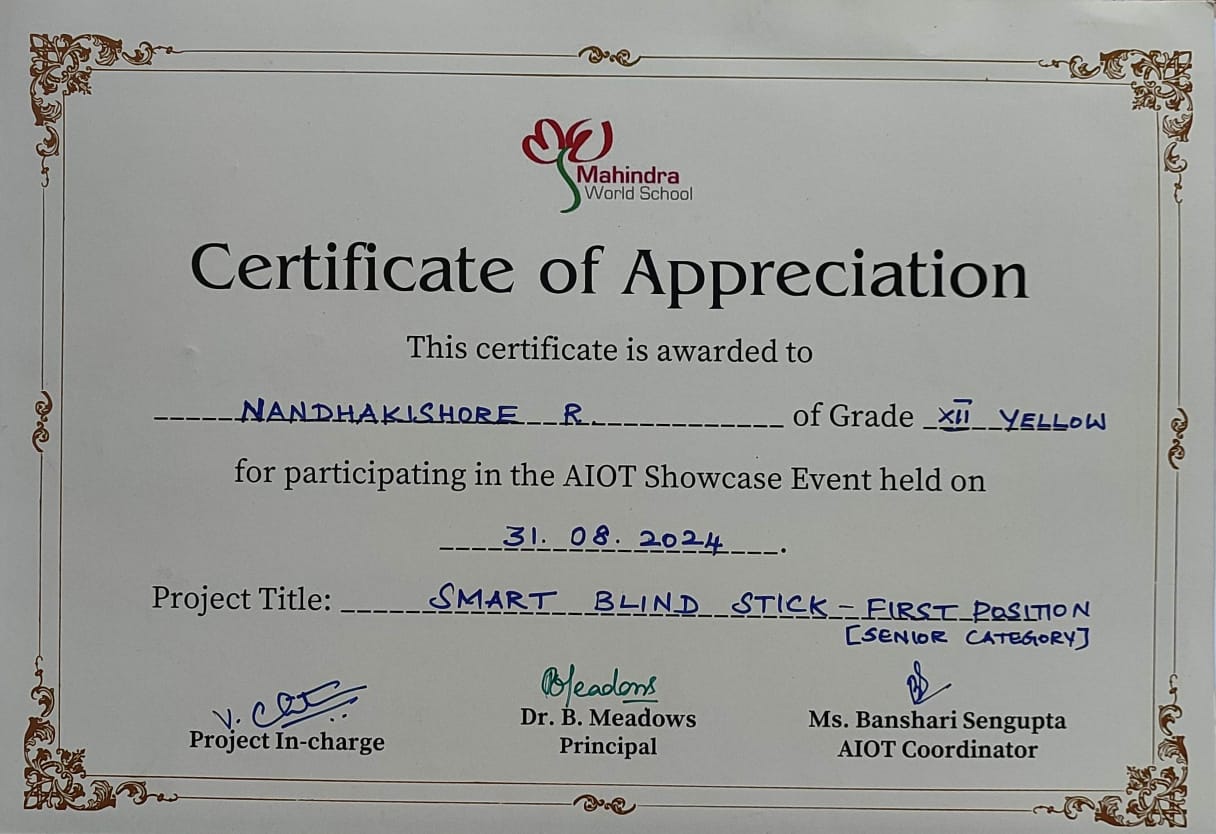 Mahindra
World School
Certificate of Appreciation
This certificate is awarded to
NANDHAKISHORE R. of Grade XII YELLOW
for participating in the AIOT Showcase Event held on
31. 08. 2024.
Project Title: SMART BLIND STICK - FIRST POSITION
[SENIOR CATEGORY]
BMeadows
Dr. B. Meadows
Ms. Banshari Sengupta
Project In-charge
Principal
AIOT Coordinator